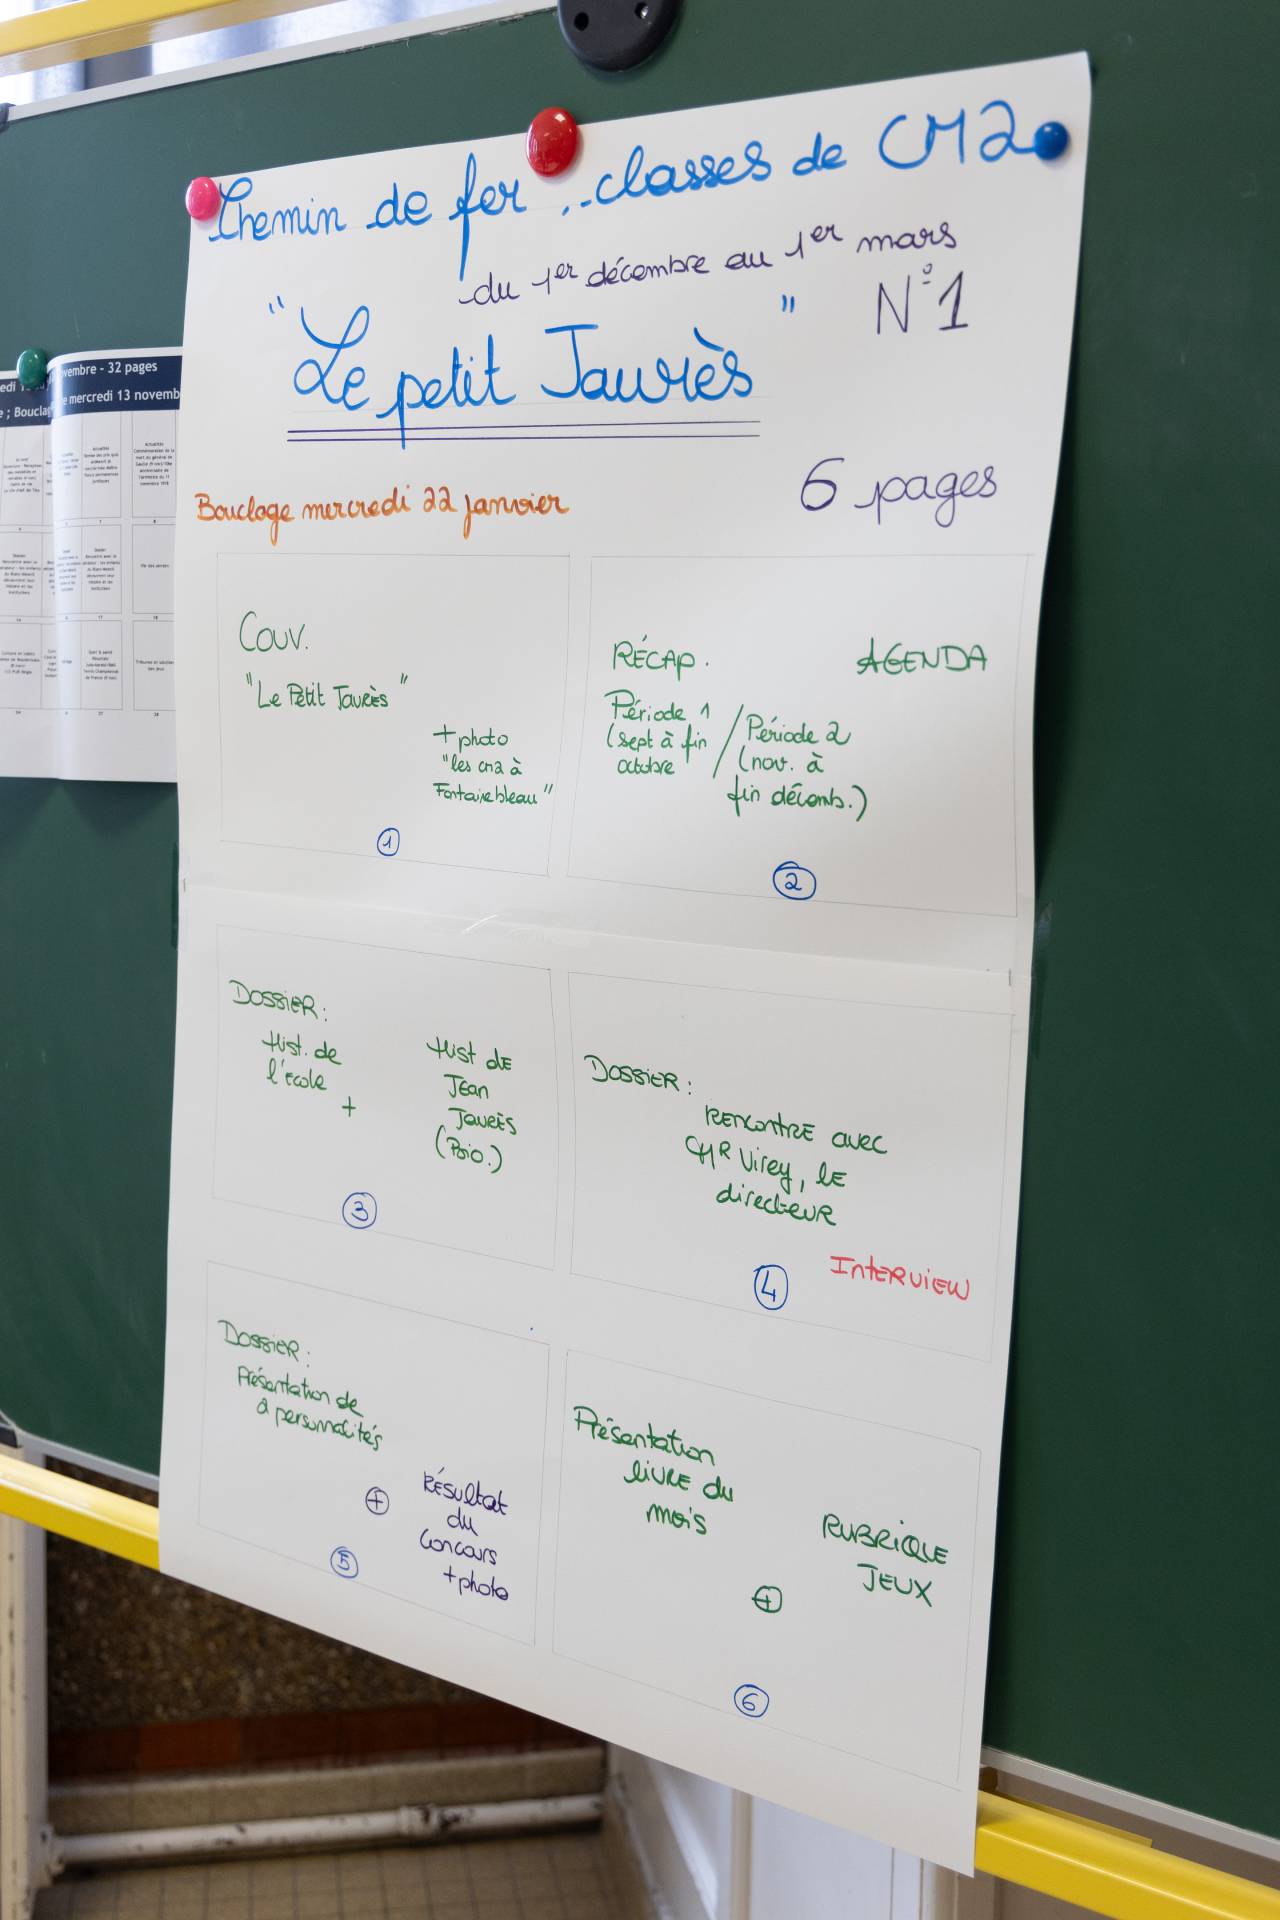 Chemin de fer, classes de CM2
du 1er décembre au 1er mars
"Le petit Jaurès" N°1
6 pages
Bouclage mercredi 22 janvier
COUV.
"Le Petit Jaurès"
+ photo
"les cm2 à
Fontainebleau"
1
RÉCAP. AGENDA
Période 1
(sept à fin
octobre
/ Période 2
(nov. à
fin décemb.)
2
DOSSIER:
Hist. de
l'école
+
Hist de
Jean
Jaurès
(Bio.)
3
DOSSIER:
RENCONTRE avec
Mr Virey, le
directeur
INTERVIEW
4
DOSSIER:
Présentation de
2 personnalités
+
RÉSultat
du
Concours
+ photo
5
Présentation
LIVRE du
mois
+
RUBRIQUE
JEUX
6
vembre - 32 pages
e mercredi 13 novemb
; Boucla